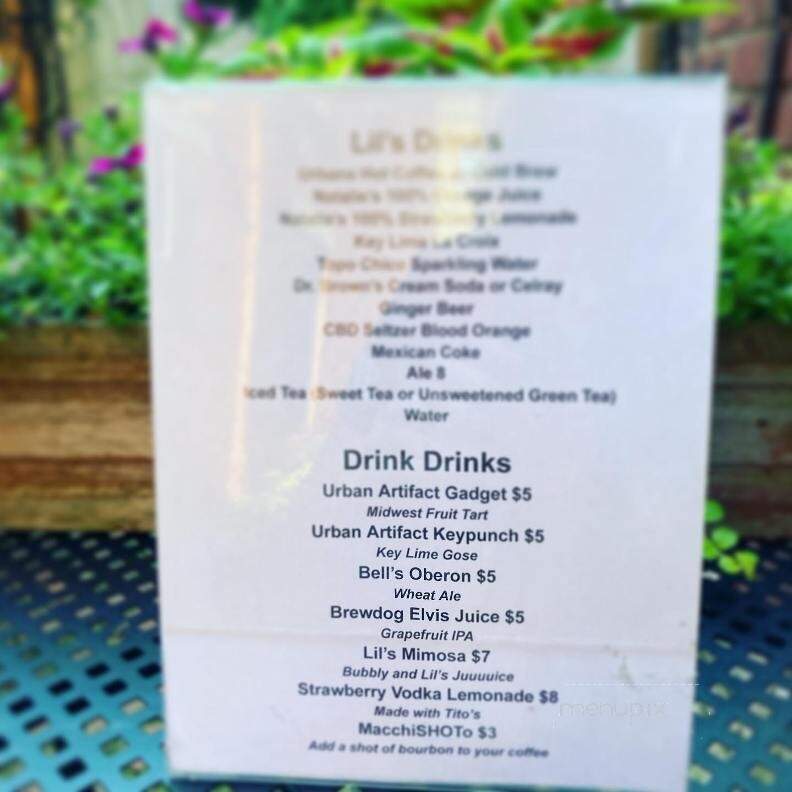 Lil's Drinks
Urbana Hot Coffee Cold Brew
Natalie's 100% Orange Juice
Natalie's 100% Strawberry Lemonade
Key Lime La Croix
Topo Chico Sparkling Water
Dr. Brown's Cream Soda or Celray
Ginger Beer
CBD Seltzer Blood Orange
Mexican Coke
Ale 8
Iced Tea (Sweet Tea or Unsweetened Green Tea)
Water
Drink Drinks
Urban Artifact Gadget $5
Midwest Fruit Tart
Urban Artifact Keypunch $5
Key Lime Gose
Bell's Oberon $5
Wheat Ale
Brewdog Elvis Juice $5
Grapefruit IPA
Lil's Mimosa $7
Bubbly and Lil's Juuuuice
Strawberry Vodka Lemonade $8
Made with Tito's
MacchiSHOTo $3
Add a shot of bourbon to your coffee
menupix